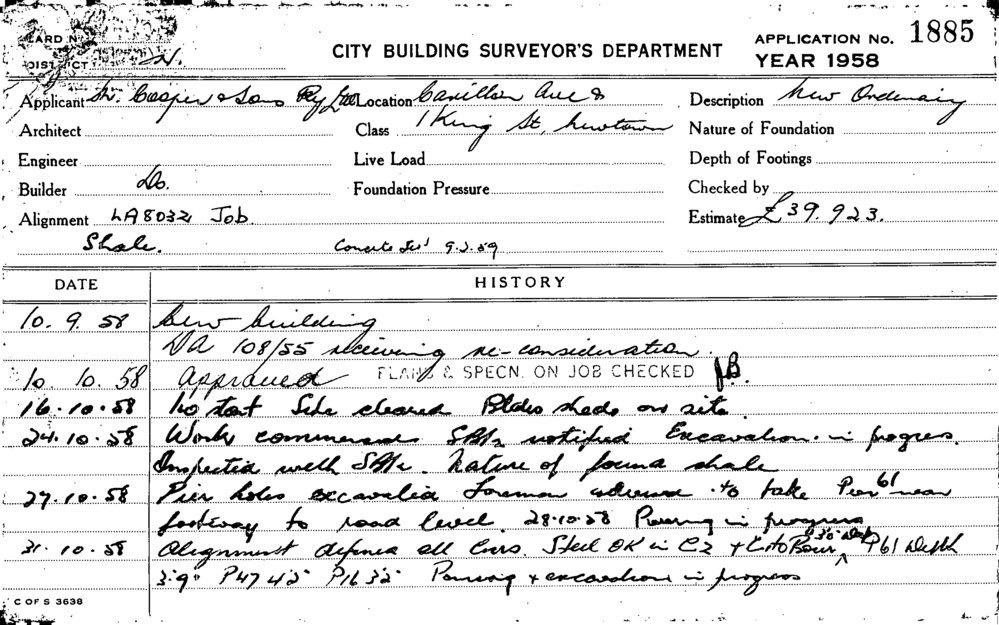 CITY BUILDING SURVEYOR'S DEPARTMENT
APPLICATION No. 1885
YEAR 1958
Applicant Cooper & Sons Pty Location Carillon Ave &
1 King St, Newtown
Description New Ordinary
Architect
Class
Nature of Foundation
Engineer
Live Load
Depth of Footings
Builder Do.
Foundation Pressure
Checked by
Alignment LA8032 Job.
Estimate £39.923.
Shale.
DATE HISTORY
10. 9. 58 New building
DA 108/55 receiving re-consideration.
10. 10. 58 Approved PLANS & SPECN. ON JOB CHECKED JB.
16.10.58 No start Site cleared Bldrs sheds on site.
24.10.58 Works commenced notified Excavation in progress.
Inspected with Nature of found shale
27.10.58 Pier holes excavated Foreman advised to take Pier 61 near
footway to road level. 28.10.58 Pouring in progress
31.10.58 Alignment defined all Cnrs. Steel OK in C2 + P61 Depth
3'9" P47 4'2" P16 3'2" Pouring + excavation in progress
C OF S 3638